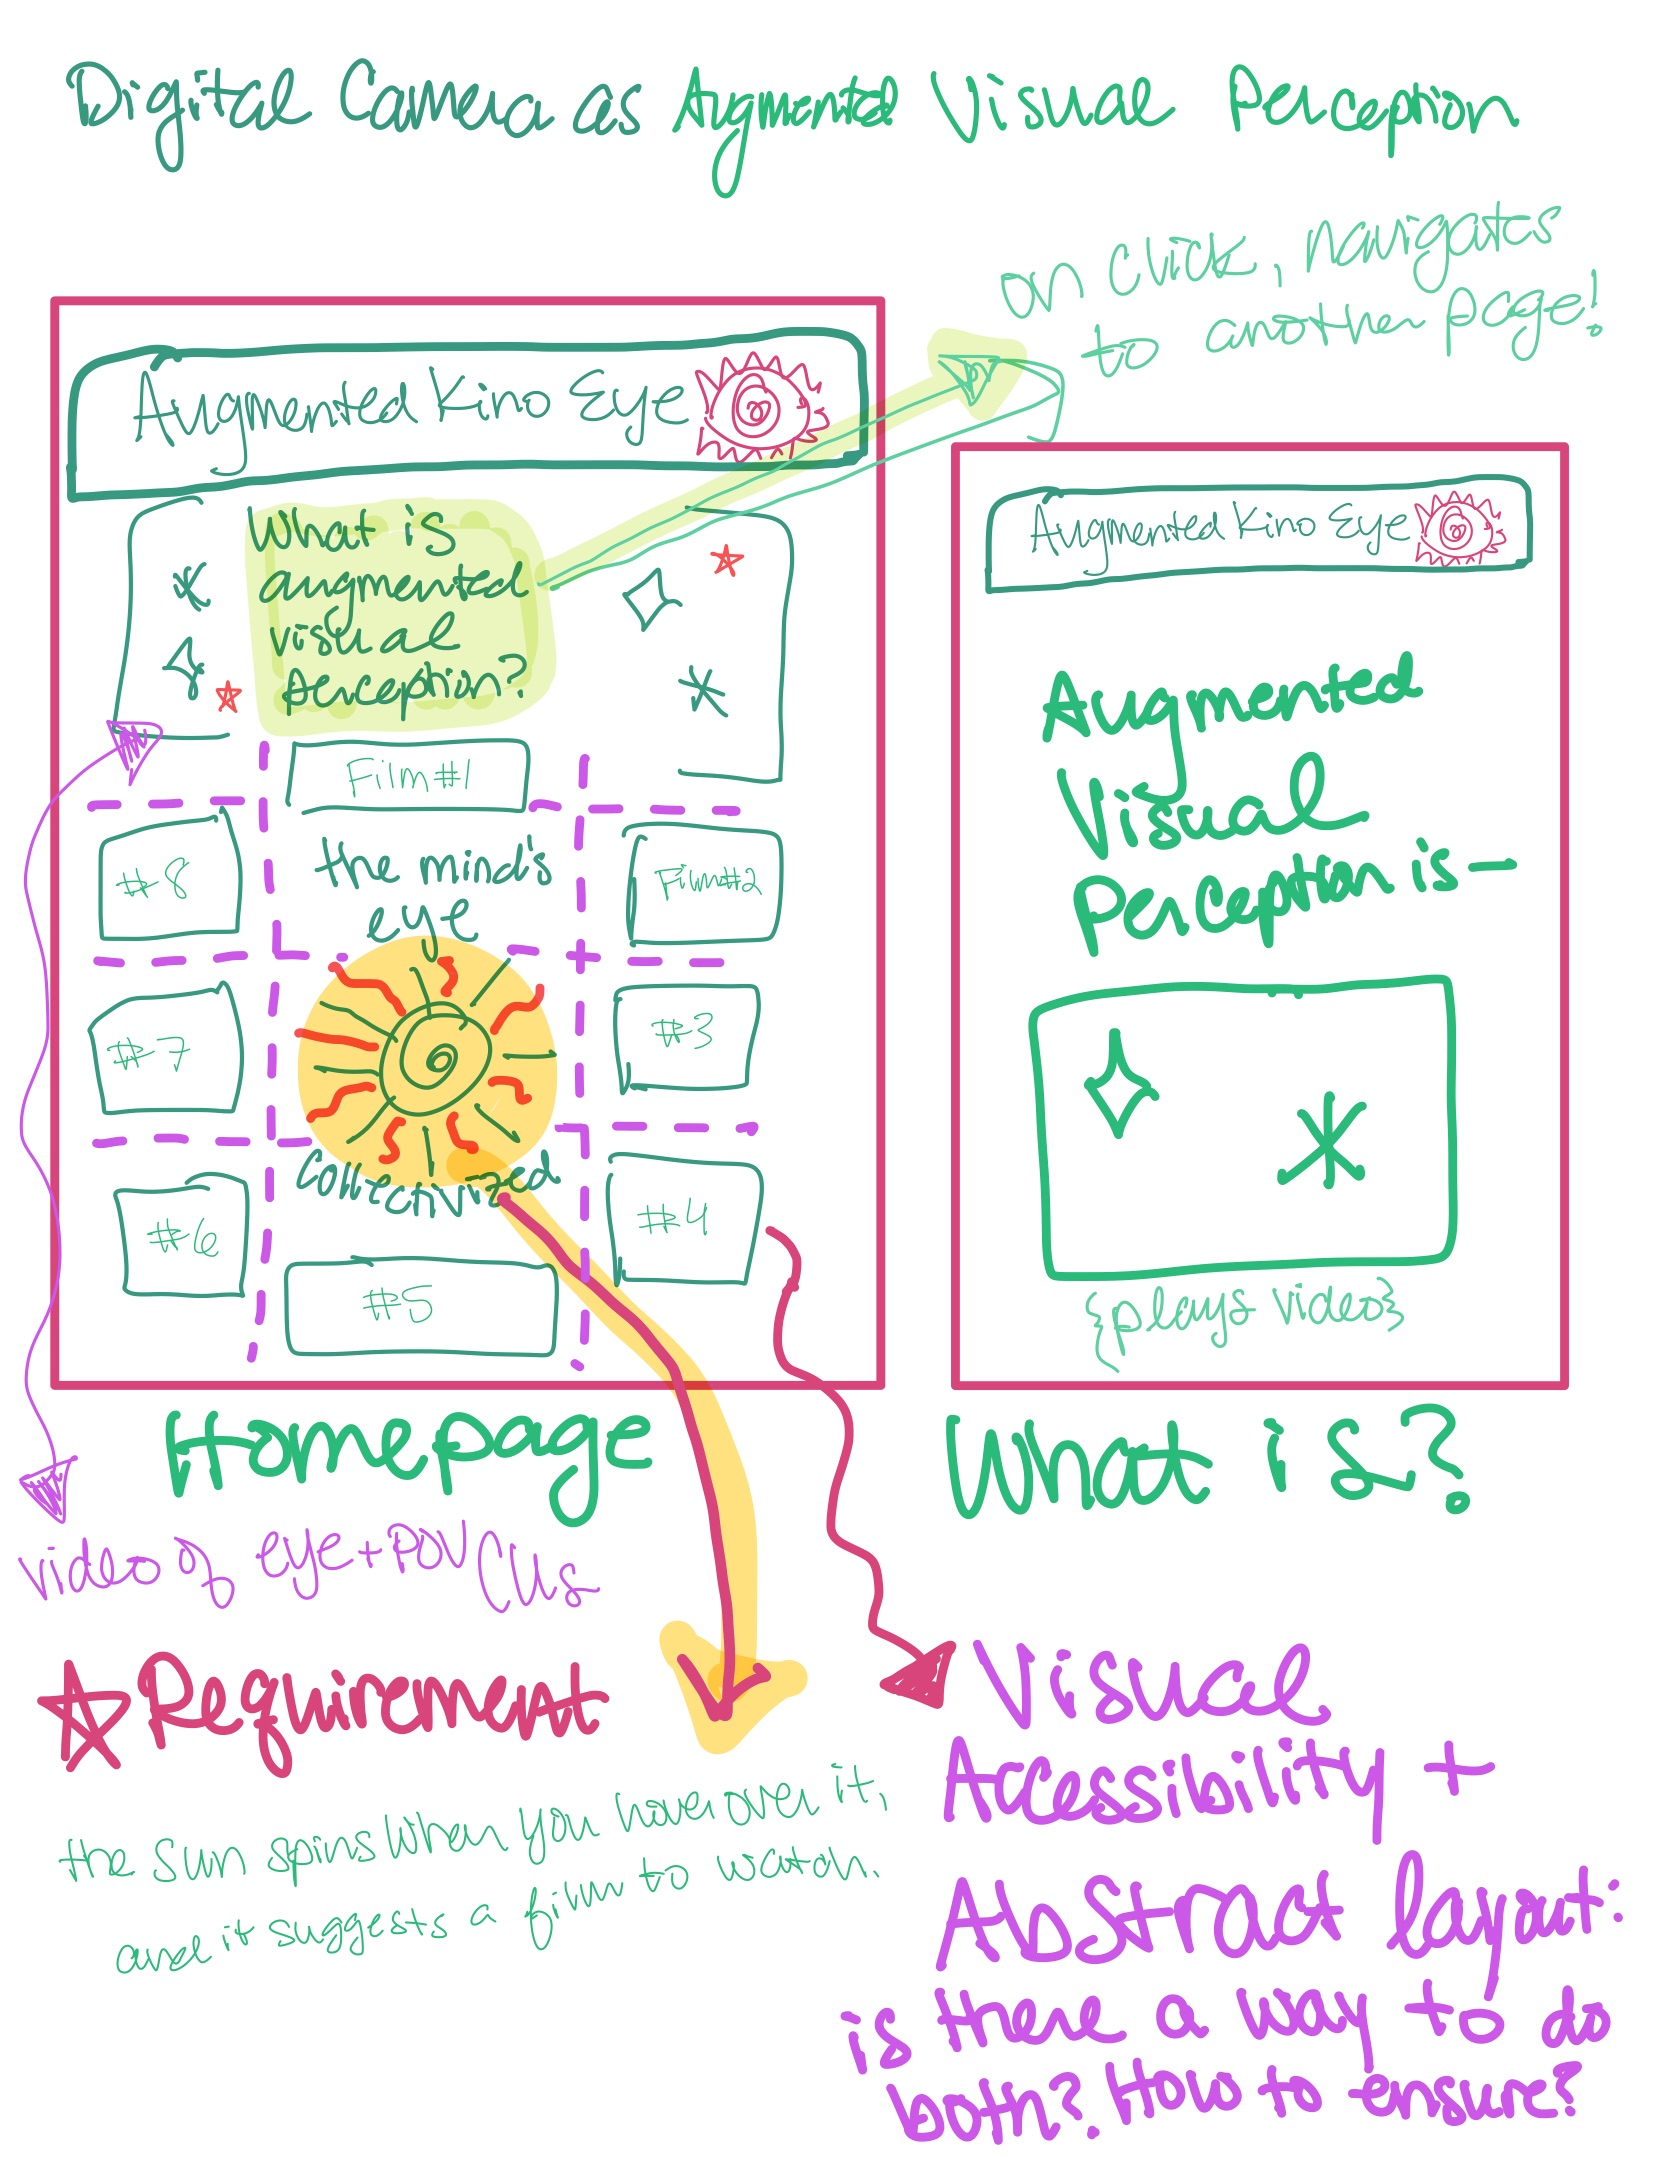 Digital Camera as Augmented Visual Perception
on click, navigates
to another page!
Augmented Kino Eye
What is
augmented
visual
perception?
Film #1
the mind's
eye
#8
Film #2
#7
#3
Collectivized
#6
#4
#5
Homepage
Augmented Kino Eye
Augmented
Visual
Perception is—
{plays video}
What is?
video of eye + POV CUs
Requirement
the sun spins when you hover over it,
and it suggests a film to watch.
Visual
Accessibility +
Abstract layout:
is there a way to do
both? How to ensure?